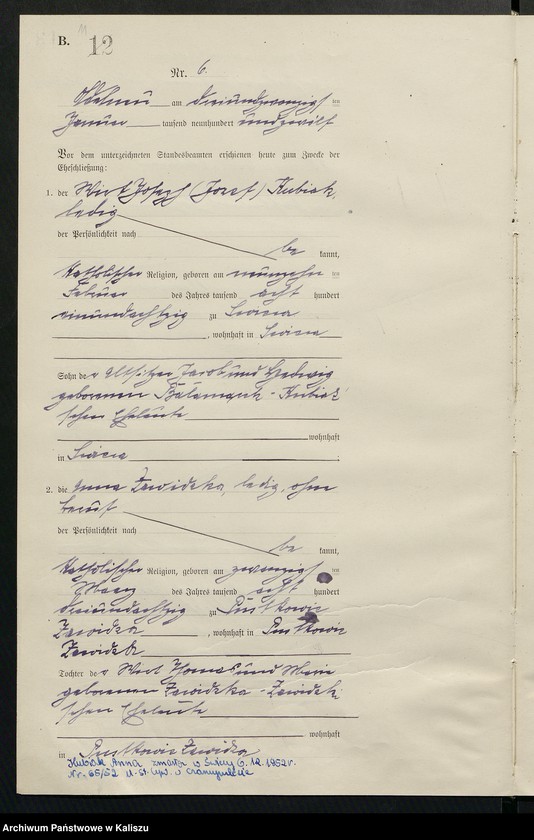 B. 12
Nr. 6.
Adelnau am dreiundzwanzigsten
Januar tausend neunhundert und zwölf
Vor dem unterzeichneten Standesbeamten erschienen heute zum Zwecke der
Eheschließung:
1. der Wirt Joseph (Jozef) Kubiak,
ledig
der Persönlichkeit nach
be kannt,
katholischer Religion, geboren am neunzehn ten
Februar des Jahres tausend acht hundert
einundachtzig zu
, wohnhaft in
Sohn der Altsitzer Jacob und Hedwig
geborenen Kubiak
schen Eheleute
wohnhaft
in
2. die Anna Zawidzka, ledig, ohne
Beruf
der Persönlichkeit nach
be kannt,
katholischer Religion, geboren am zwanzigsten
März des Jahres tausend acht hundert
dreiundachtzig zu Pustkowie
Zawidza, wohnhaft in Pustkowie
Tochter der Wirt Thomas und Marie
geborenen Zawidzka - Zawidzki
schen Eheleute
wohnhaft
in Pustkowie Zawidza
Kubiak Anna zmarła w 6.12.1952r.
Nr. 65/52
Archiwum Państwowe w Kaliszu